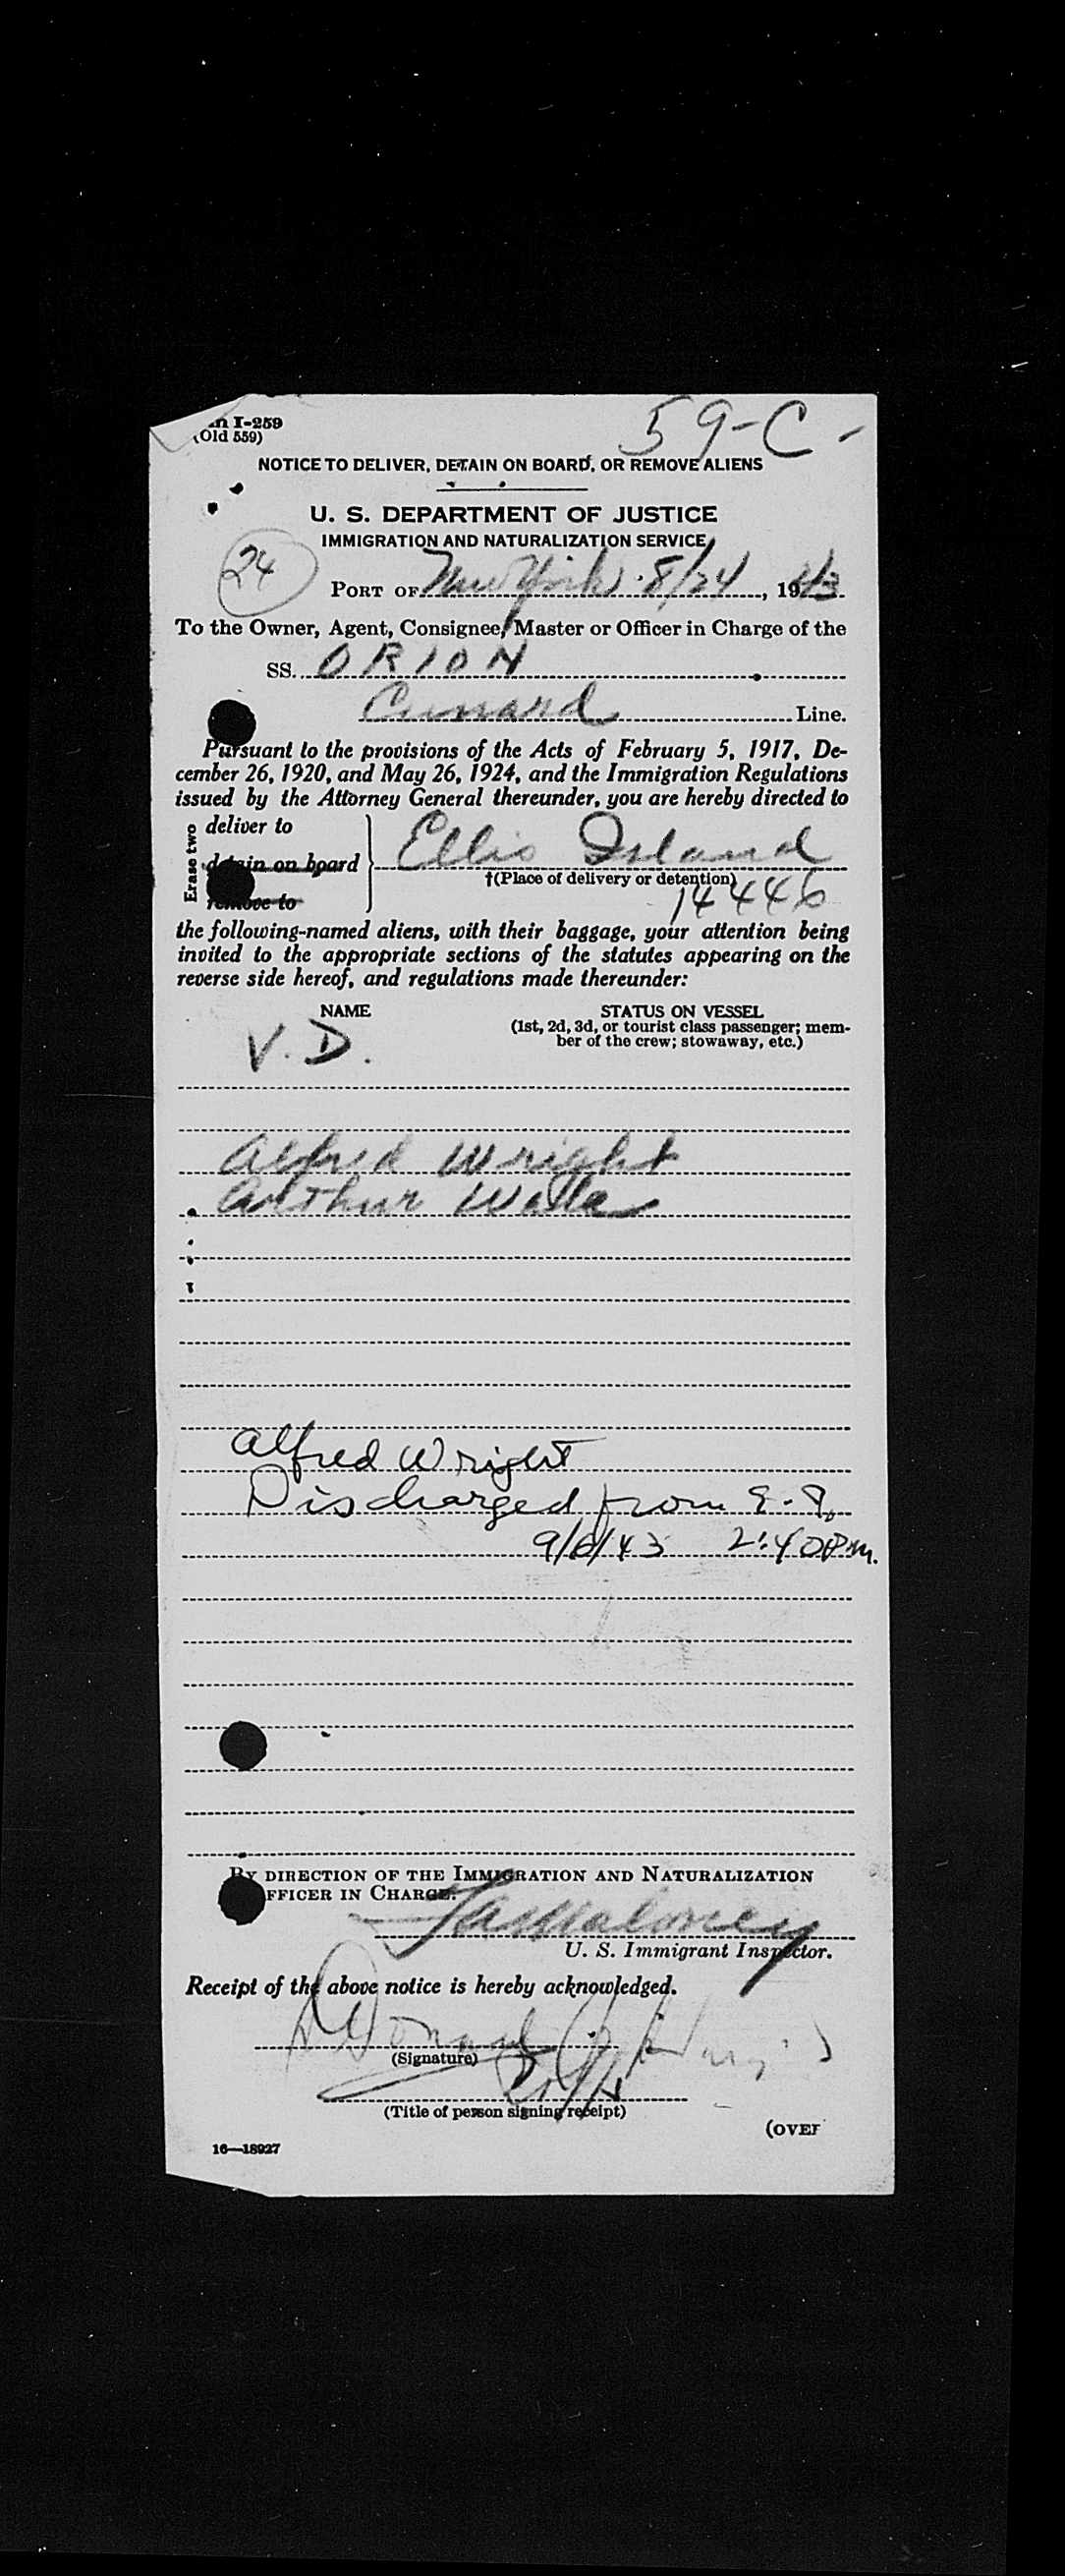 59-C-
I-259
(Old 559)
NOTICE TO DELIVER, DETAIN ON BOARD, OR REMOVE ALIENS
U. S. DEPARTMENT OF JUSTICE
IMMIGRATION AND NATURALIZATION SERVICE
24
PORT OF New York 8/24, 1943
To the Owner, Agent, Consignee, Master or Officer in Charge of the
SS. ORION
Cunard Line.
Pursuant to the provisions of the Acts of February 5, 1917, De-
cember 26, 1920, and May 26, 1924, and the Immigration Regulations
issued by the Attorney General thereunder, you are hereby directed to
Erase two
deliver to
detain on board
remove to
Ellis Island
†(Place of delivery or detention)
14446
the following-named aliens, with their baggage, your attention being
invited to the appropriate sections of the statutes appearing on the
reverse side hereof, and regulations made thereunder:
NAME
STATUS ON VESSEL
(1st, 2d, 3d, or tourist class passenger; mem-
ber of the crew; stowaway, etc.)
V. D.
Alfred Wright
Arthur
Alfred Wright
Discharged from E. I.
9/6/43 2:40 P.m.
BY DIRECTION OF THE IMMIGRATION AND NATURALIZATION
OFFICER IN CHARGE:
Maloney
U. S. Immigrant Inspector.
Receipt of the above notice is hereby acknowledged.
(Signature)
(Title of person signing receipt)
(OVER
16—18927